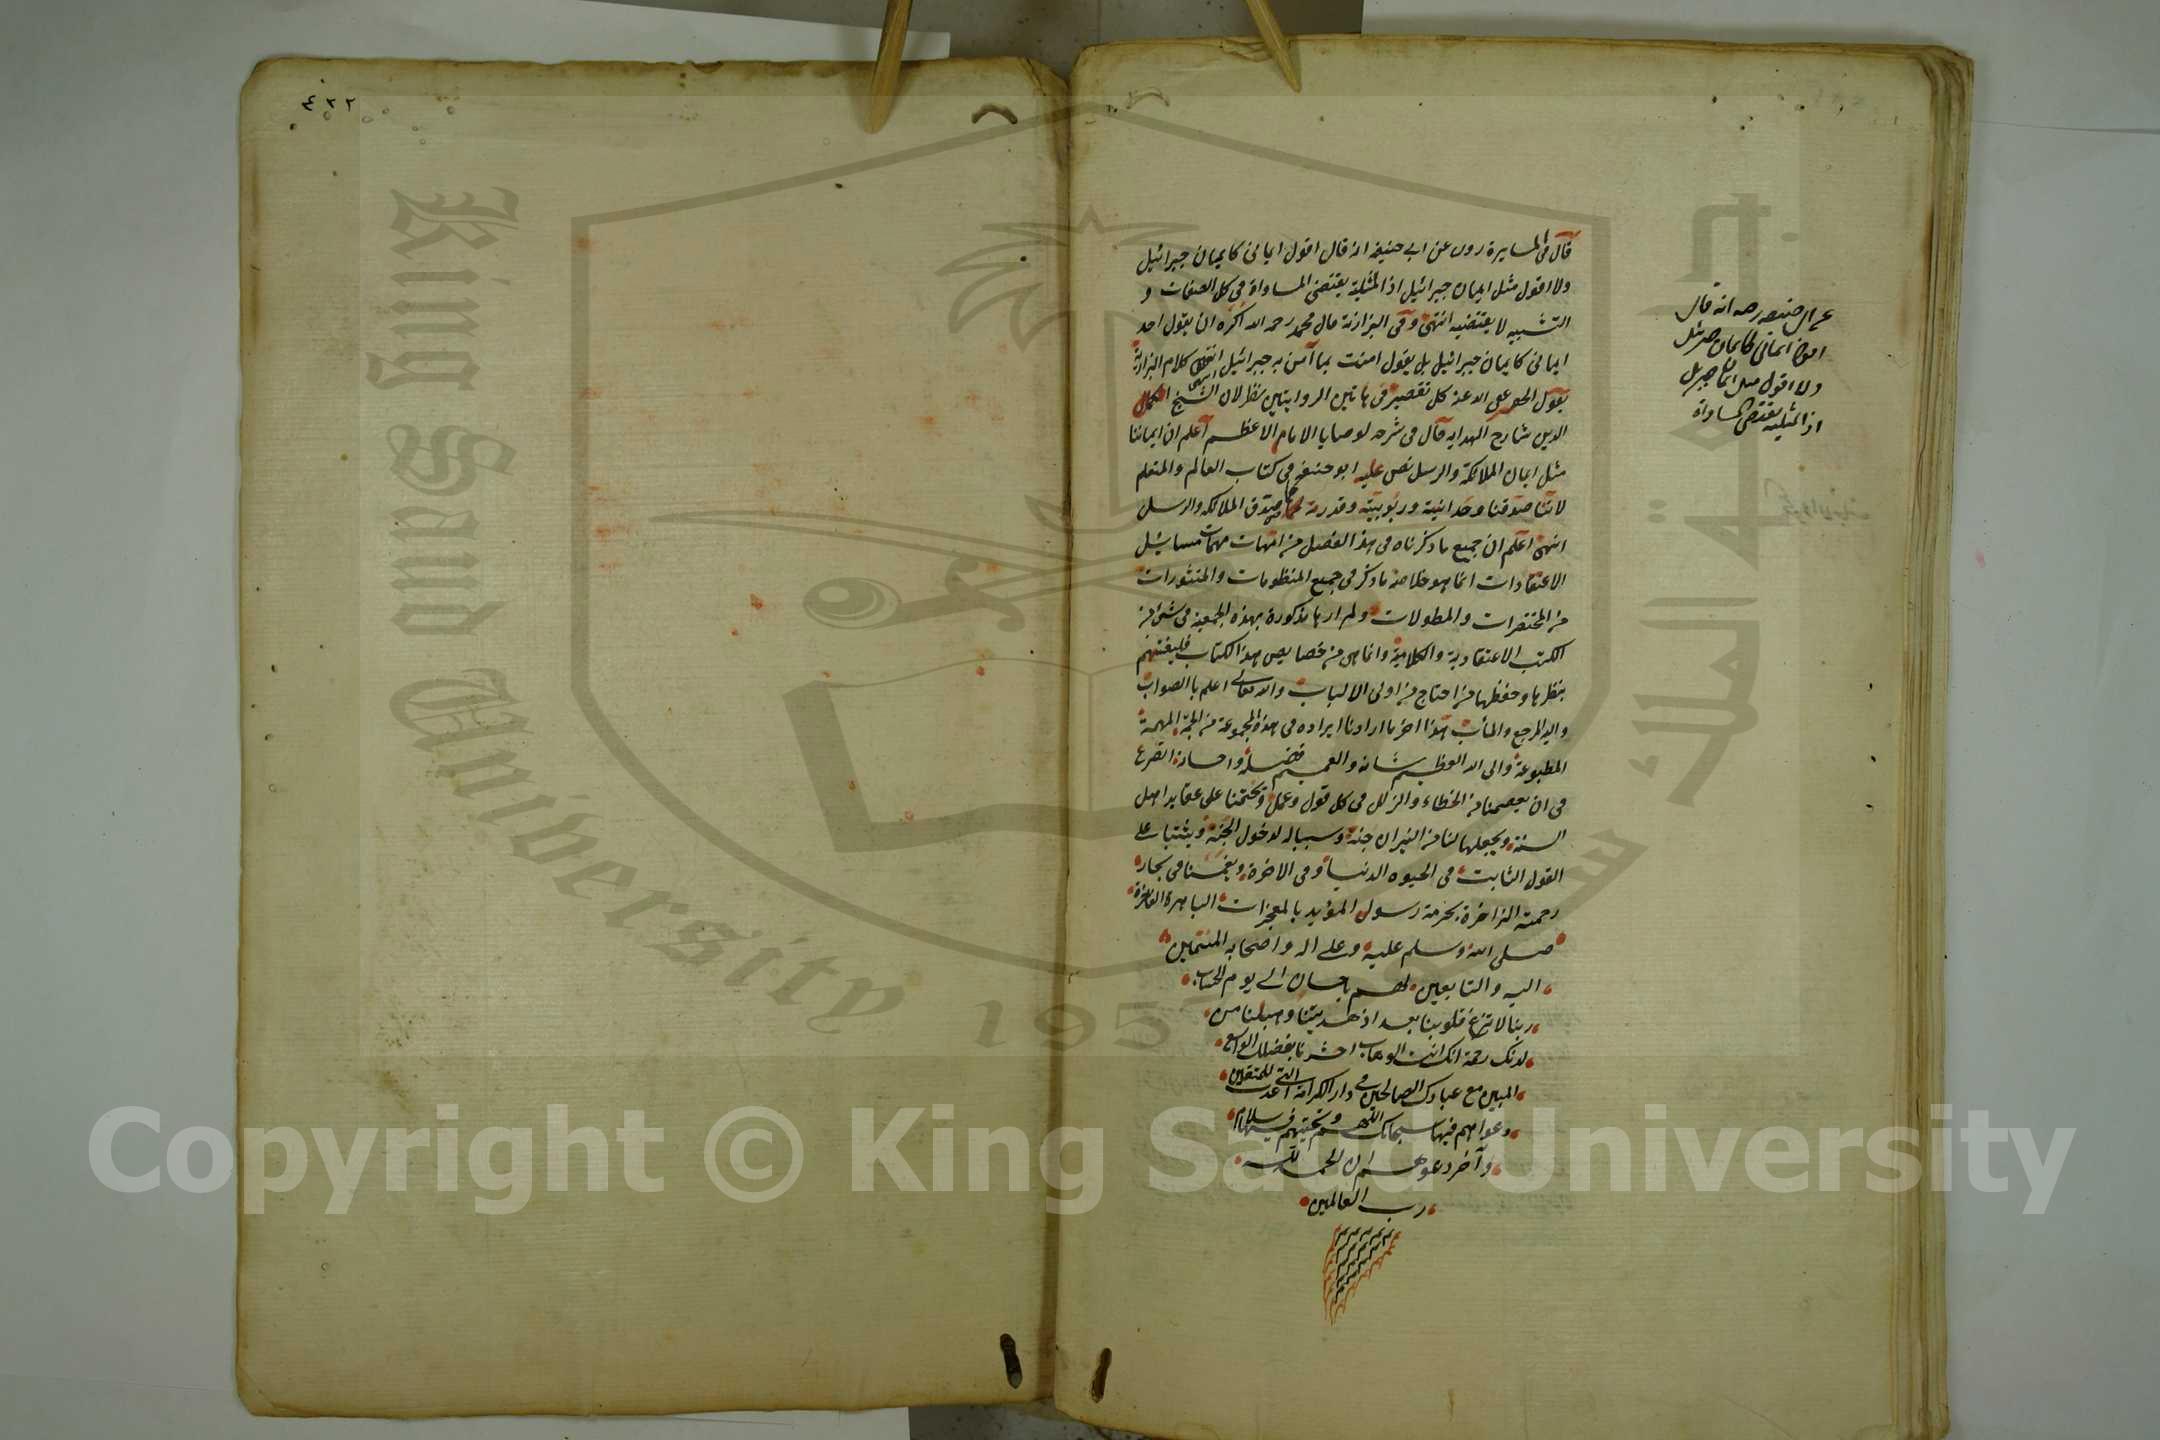 قال فى المسايرة روى عن ابى حنيفة انه قال اقول ايمانى كايمان جبرائيل
ولا اقول مثل ايمان جبرائيل اذ المثلية يقتضى المساواة فى كل الصفات و
التشبيه لا يقتضيه انتهى وفى البزازية قال محمد رحمه الله اكره ان يقول احد
ايمانى كايمان جبرائيل بل يقول امنت بما آمن به جبرائيل انتهى كلام البزازية
يقول عفى الله عنه كل تقصير فى هاتين الروايتين نظر لان الشيخ اكمل
الدين شارح الهدايه قال فى شرحه لوصايا الامام الاعظم آعلم ان ايماننا
مثل ايمان الملائكة والرسل نص عليه ابو حنيفه فى كتاب العالم والمتعلم
لاننا صدقنا وحدانية وربوبيته وقدرته كما صدق الملائكه والرسل
انتهى آعلم ان جميع ما ذكرناه فى هذا الفصل من امهات مهمات مسائيل
الاعتقادات انما هو خلاصة ما ذكر فى جميع المنظومات والمنثورات
من المختصرات والمطولات ولم ارها مذكورة بهذه الجمعية فى شئ من
الكتب الاعتقادية والكلامية وانما هى من خصايص هذا الكتاب فليغتنم
بنظرها وحفظها من احتاج من اولى الالباب والله تعالى اعلم بالصواب
واليه المرجع والمآب هذا اخر ما اردنا ايراده فى هذه المجموعة من المهمة
المطبوعة والى الله العظيم شانه والعميم فضله واحسانه اتضرع
فى ان يعصمنا من الخطاء والزلل فى كل قول وعمل ويختمنا على عقايد اهل
السنة ويجعلها لنا من النيران جنة وسببا لدخول الجنة ويثبتنا على
القول الثابت فى الحيوه الدنيا وفى الاخرة ويغمسنا فى بحار
رحمته الزاخرة بحرمة رسوله المؤيد بالمعجزات الباهرة الفاخرة
صلى الله وسلم عليه وعلى اله واصحابه المنتمين
اليه والتابعين لهم باحسان الى يوم الحساب
ربنا لا تزغ قلوبنا بعد اذ هديتنا وهب لنا من
لدنك رحمة انك انت الوهاب احشرنا بفضلك الواسع
المبين مع عبادك الصالحين فى دار الكرامة التى اعدت للمتقين
دعواهم فيها سبحانك اللهم وتحيتهم فيها سلام
وآخر دعويهم ان الحمد لله
رب العالمين
عن ابى حنيفه رحمه انه قال
اقول ايمانى كايمان جبرئيل
ولا اقول مثل ايمان جبريل
اذ المثلية يقتضى المساواة
٤٢٢
King Saud University
1957
Copyright © King Saud University